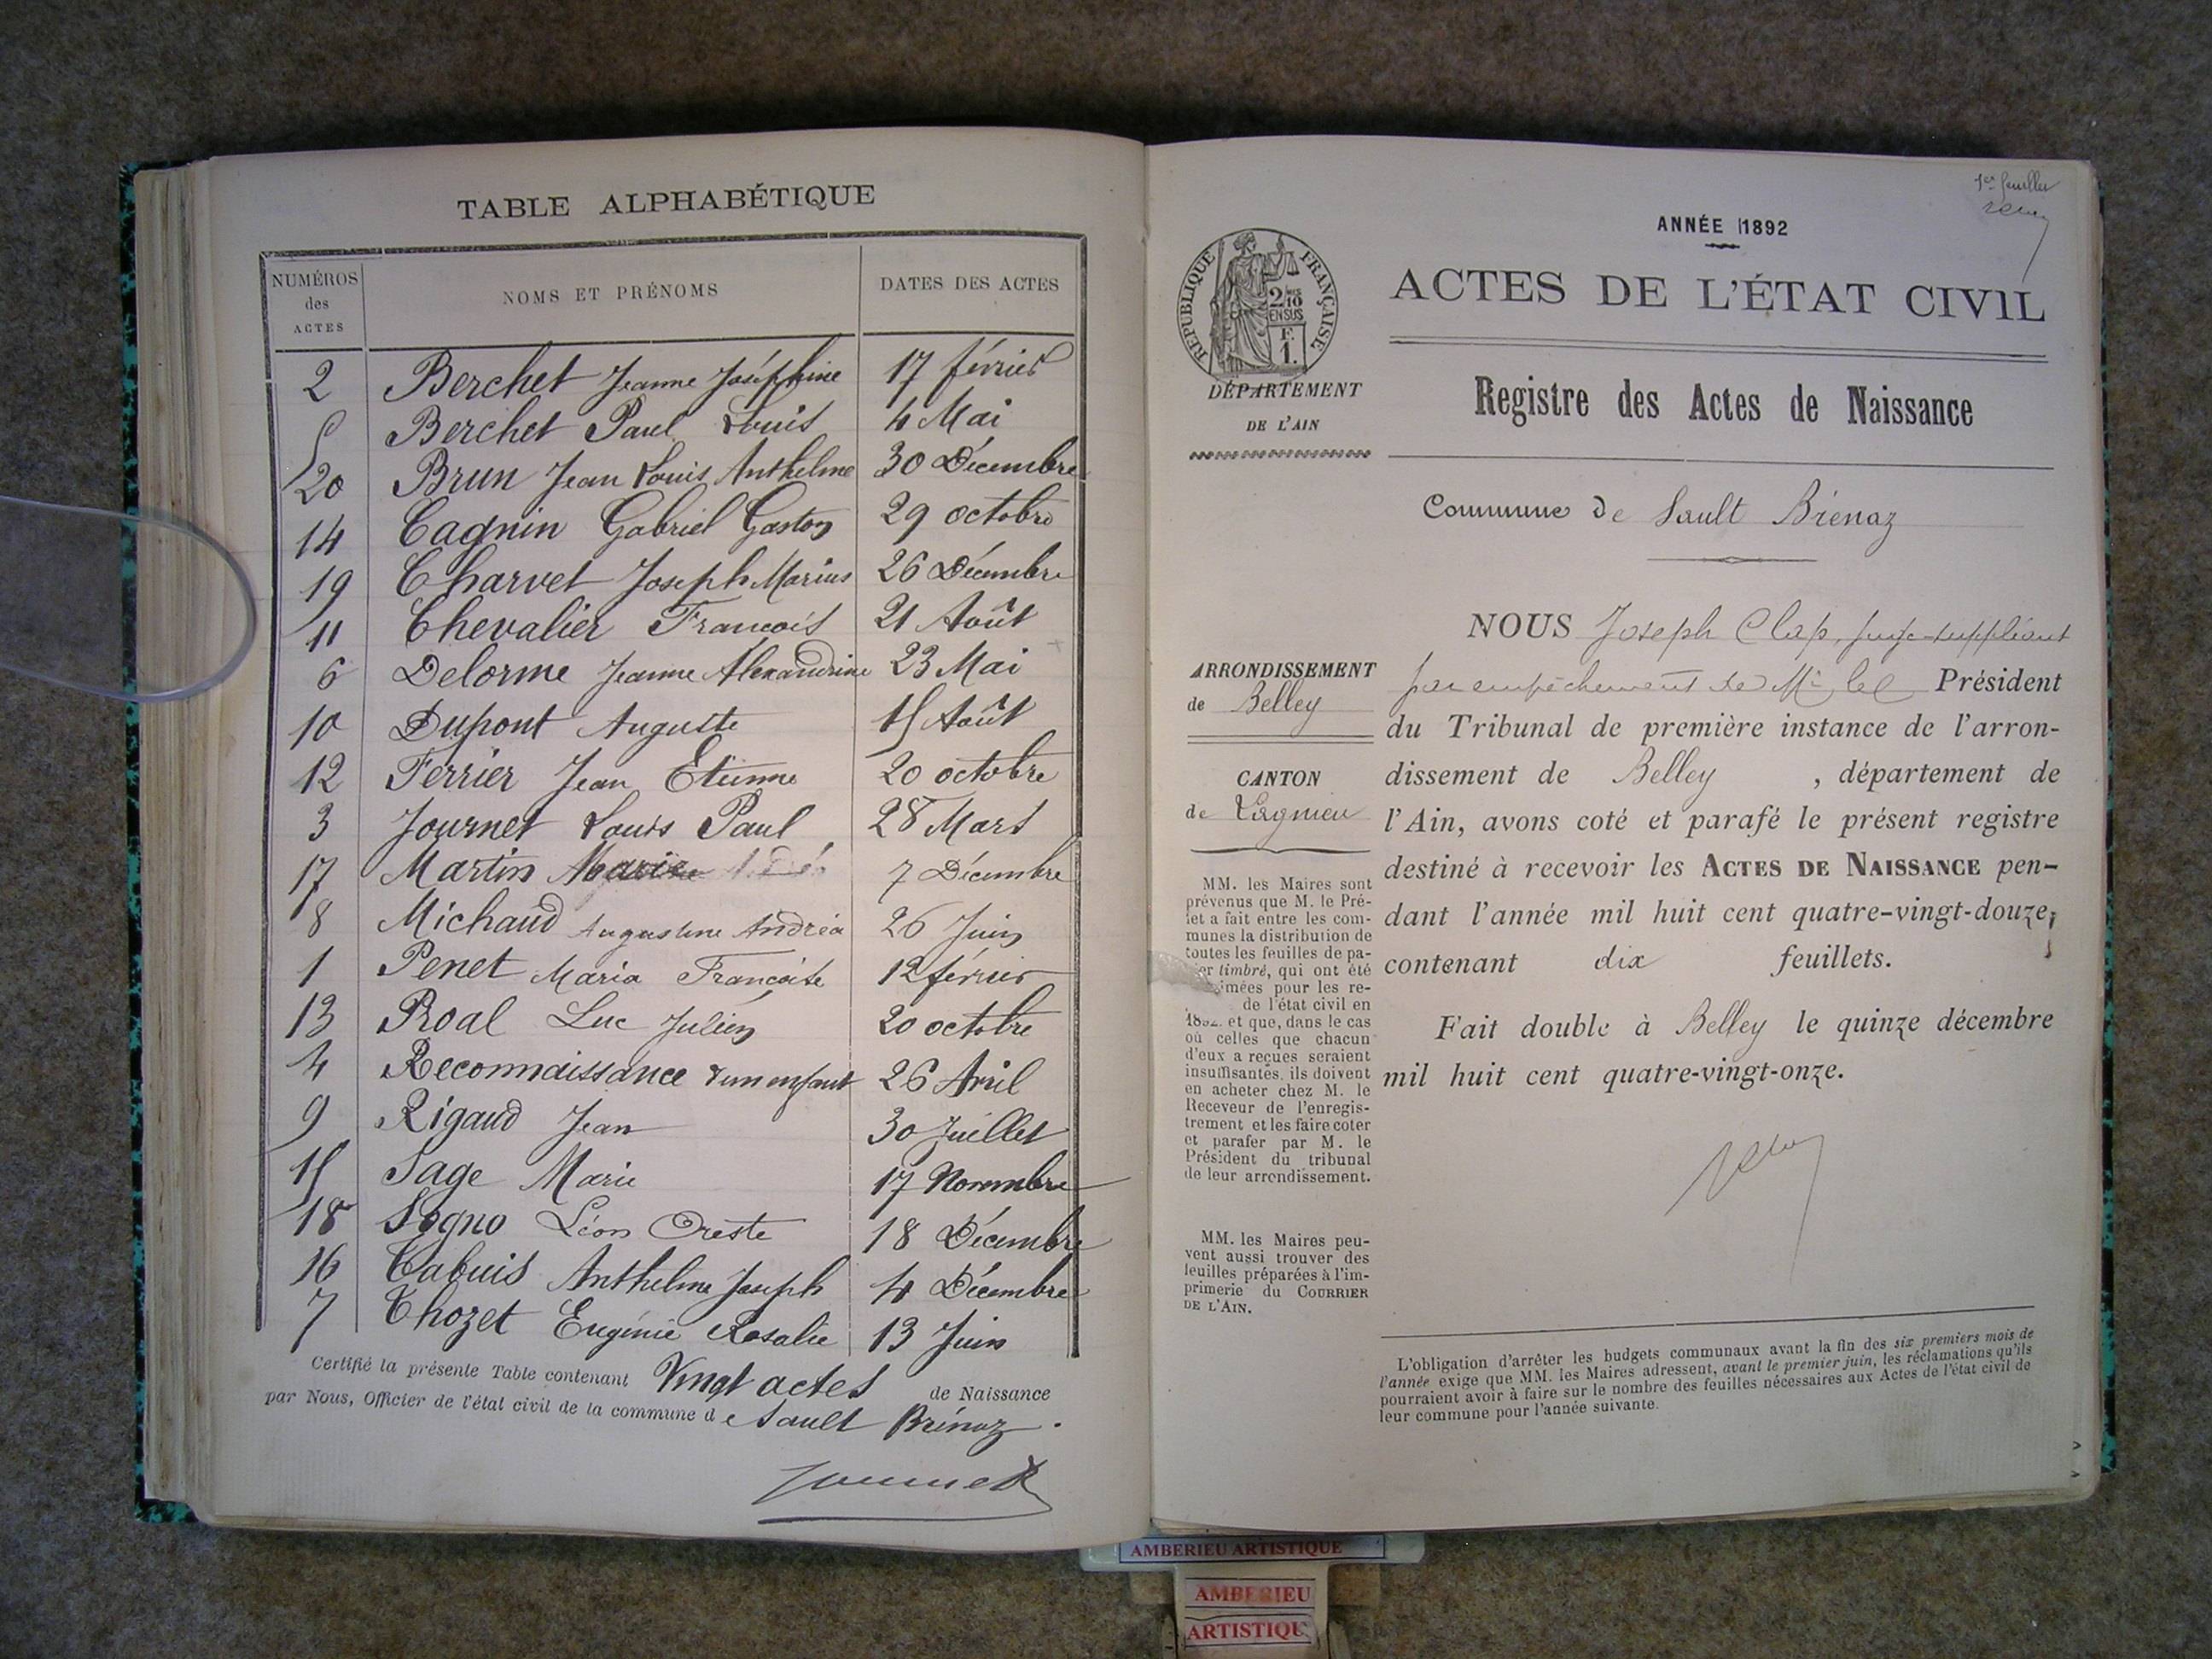 TABLE ALPHABÉTIQUE
NUMÉROS des ACTES
NOMS ET PRÉNOMS
DATES DES ACTES
2 Berchet Jeanne Joséphine 17 février
5 Berchet Paul Louis 4 Mai
20 Brun Jean Louis Anthelme 30 Décembre
14 Cagnin Gabriel Gaston 29 octobre
19 Charvet Joseph Marius 26 Décembre
11 Chevalier François 21 Août
6 Delorme Jeanne Alexandrine 23 Mai
10 Dupont Auguste 15 Août
12 Ferrier Jean Etienne 20 octobre
3 Journet Louis Paul 28 Mars
17 Martin 7 Décembre
8 Michaud Augustine Andréa 26 Juin
1 Penet Maria Françoise 12 février
13 Proal Luc Julien 20 octobre
4 Reconnaissance d'un enfant 26 Avril
9 Rigaud Jean 30 Juillet
15 Sage Marie 17 Novembre
18 Sogno Léon Oreste 18 Décembre
16 Tabuis Anthelme Joseph 4 Décembre
7 Thozet Eugénie Rosalie 13 Juin
Certifié la présente Table contenant Vingt actes de Naissance
par Nous, Officier de l'état civil de la commune de Sault Brénaz.
Journet
1er feuillet
ANNÉE 1892
RÉPUBLIQUE FRANÇAISE
2/10
EN SUS
F.
1.
ACTES DE L'ÉTAT CIVIL
DÉPARTEMENT
DE L'AIN
Registre des Actes de Naissance
Commune de Sault Brénaz
ARRONDISSEMENT
de Belley
CANTON
de Lagnieu
NOUS Joseph Clap, juge-suppléant
par empêchement de Mr le Président
du Tribunal de première instance de l'arron-
dissement de Belley, département de
l'Ain, avons coté et parafé le présent registre
destiné à recevoir les ACTES DE NAISSANCE pen-
dant l'année mil huit cent quatre-vingt-douze,
contenant dix feuillets.
Fait double à Belley le quinze décembre
mil huit cent quatre-vingt-onze.
MM. les Maires sont
prévenus que M. le Pré-
fet a fait entre les com-
munes la distribution de
toutes les feuilles de pa-
timbré, qui ont été
pour les re-
de l'état civil en
et que, dans le cas
où celles que chacun
d'eux a reçues seraient
insuffisantes, ils doivent
en acheter chez M. le
Receveur de l'enregis-
trement et les faire coter
et parafer par M. le
Président du tribunal
de leur arrondissement.
MM. les Maires peu-
vent aussi trouver des
feuilles préparées à l'im-
primerie du COURRIER
DE L'AIN.
L'obligation d'arrêter les budgets communaux avant la fin des six premiers mois de
l'année exige que MM. les Maires adressent, avant le premier juin, les réclamations qu'ils
pourraient avoir à faire sur le nombre des feuilles nécessaires aux Actes de l'état civil de
leur commune pour l'année suivante.
AMBERIEU ARTISTIQUE
AMBERIEU
ARTISTIQU